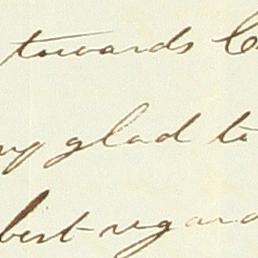 towards
glad to
best regard